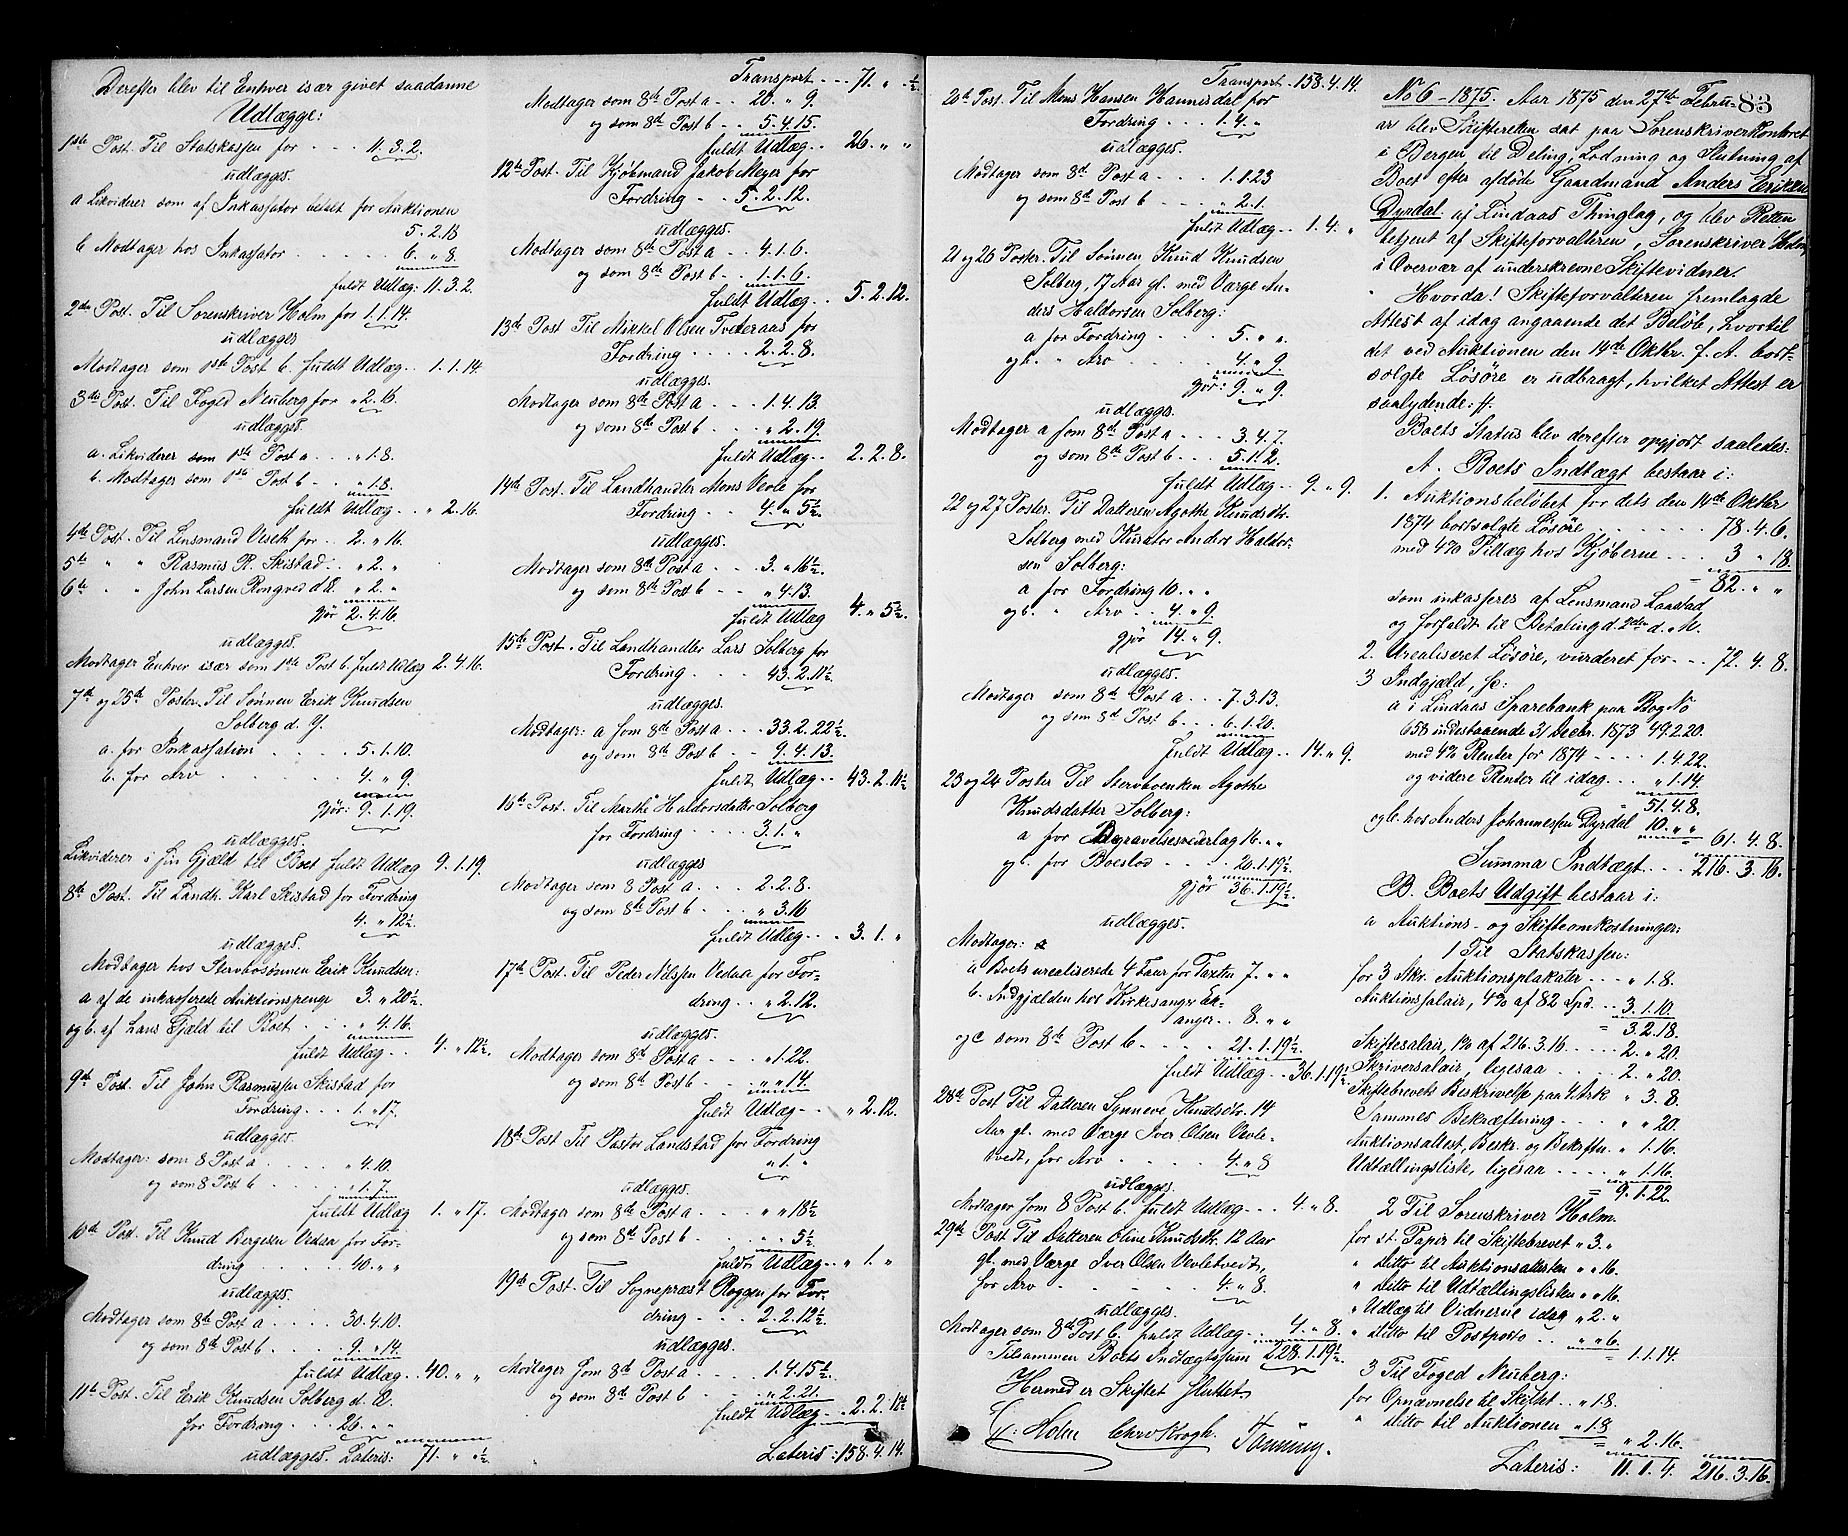 Derefter blev til Enhver især givet saadanne
Udlægge:
1ste Post. Til Statskassen for - - - 11.3.2.
udlægges.
a Likviderer som af Inkassator betalt for Auktionen
5.2.18
b Modtager hos Inkassator . . . . . . 6. " 8.
fuldt Udlæg: 11.3.2.
2den Post. Til Sorenskriver Holm for 1.1.14.
udlægges
Modtager som 1ste Post b. fuldt Udlæg . . 1.1.14.
3die Post. Til Foged Neuberg for " 2.16.
udlægges.
a. Likviderer som 1ste Post a . . . " 1.8.
b. Modtager som 1ste Post b . . " 1.8.
fuldt Udlæg . . " 2.16.
4de Post. Til Lensmand Vesett for . . 2. " 16.
5te " " Rasmus R. Skistad . . " 2. "
6te " " John Larsen Rongved d.Æ. " 2. "
gjör 2.4.16.
udlægges.
Modtager Enhver især som 1ste Post b. fuldt Udlæg 2.4.16.
7de og 25de Poster. Til Sönnen Erik Knudsen
Solberg d. Y.
a. for Inkassation . . . . . 5.1.10.
b. for Arv . . . . . . . 4. " 9.
gjör: 9.1.19.
udlægges.
Likviderer i sin Gjæld til Boet fuldt Udlæg 9.1.19.
8de Post. Til Landh. Karl Skistad for Fordring
4. " 12½.
udlægges.
Modtager hos Stervbosönnen Erik Knudsen:
a af de inkasserede Auktionspenge 3. " 20½.
og b. af hans Gjæld til Boet . . . " 4.16.
fuldt Udlæg . . 4. " 12½.
9de Post. Til John Rasmussen Skistad for
Fordring . . . 1. " 17.
udlægges.
Modtager: som 8 Post a . . . . . " 4.10.
og som 8 Post b . . . . . " 1.7.
fuldt Udlæg 1. " 17.
10de Post. Til Knud Bergesen Vedaa for For-
dring . . . . . . 40. " "
udlægges.
Modtager som 8de Post a . . . . . 30.4.10.
og som 8de Post b . . . . 9. " 14.
fuldt Udlæg . . 40. " "
11te Post. Til Erik Knudsen Solberg d. Æ.
for Fordring . . . 26. " "
udlægges. Lateris: 71. " " ½.
Transport . . . 71. " " ½.
Modtager som 8de Post a . . 20. " 9.
og som 8de Post b . . . 5.4.15.
fuldt Udlæg . . 26. " "
12te Post. Til Kjöbmand Jakob Meyer for
Fordring . . . 5.2.12.
udlægges.
Modtager som 8de Post a . . . 4.1.6.
og som 8de Post b . . . 1.1.6.
fuldt Udlæg . . 5.2.12.
13de Post Til Mikkel Olsen Tveteraas for
Fordring . . . . 2.2.8.
udlægges.
Modtager som 8de Post a . . . 1.4.13.
og som 8de Post b . . . " 2.19
fuldt Udlæg . . 2.2.8.
14de Post. Til Landhandler Mons Vevle for
Fordring . . . 4. " 5½.
udlægges.
Modtager som 8de Post a . . . 3. " 16½.
og som 8de Post b . . . " 4.13.
fuldt Udlæg 4. " 5½.
15de Post. Til Landhandler Lars Solberg for
Fordring . . . . 43.2.11½.
udlægges.
Modtager: a som 8de Post a . . . 33.2.22½.
og som 8de Post b . . . 9.4.13.
fuldt Udlæg . . 43.2.11½
16de Post. Til Marthe Haldorsdatter Solberg
for Fordring . . . . 3.1. "
udlægges
Modtager som 8 Post a . . . . 2.2.8.
og som 8de Post b . . . " 3.16
fuldt Udlæg . . . 3.1. "
17de Post. Til Peder Nilssen Vedaa for For-
dring . . " 2.12.
udlægges.
Modtager som 8de Post a . . . " 1.22.
og som 8de Post b . . . " " 14.
fuldt Udlæg . . " 2.12.
18de Post Til Pastor Landstad for Fordring
" 1. "
udlægges.
Modtager som 8de Post a . . . " " 18½
og som 8de Post b . . . " " 5½
fuldt Udlæg . . " 1. "
19de Post. Til Sognepræst Roggen for For-
dring . . . . 2.2.12½.
udlægges.
Modtager som 8de Post a . . . . 1.4.15½.
og som 8de Post b . . . . " 2.21.
fuldt Udlæg . . 2.2.12½
Lateris: 158.4.14.
Transport . 158.4.14.
20de Post. Til Mons Hansen Hannisdal for
Fordring . . . 1.4. "
udlægges.
Modtager som 8de Post a . . . 1.1.23
og som 8de Post b . . . . " 2.1.
fuldt Udlæg . . 1.4. "
21 og 26 Poster. Til Sönnen Knud Knudsen
Solberg, 17 Aar gl. med Værge An-
ders Haldorsen Solberg:
a for Fordring . . . . 5. " "
og b. " Arv . . . . . 4. " 9.
gjör: 9. " 9.
udlægges
Modtager a som 8de Post a . . . 3.4.7.
og som 8de Post b . . . . 5.1.2.
fuldt Udlæg . . 9. " 9.
22 og 27 Poster. Til Datteren Agothe Knudsdtr.
Solberg med Kurator Anders Haldor-
sen Solberg:
a for Fordring 10. " "
og b. " Arv . . 4. " 9.
gjör 14. " 9.
udlægges.
Modtager som 8de Post a . . . 7.3.13.
og som 8de Post b . . . 6.1.20.
fuldt Udlæg . . 14. " 9.
23 og 24 Poster Til Stervboenken Agothe
Knudsdatter Solberg:
a for Begravelsesvederlag 16. " "
og b. for Boeslod . . . . 20.1.19½
gjör 36.1.19½.
udlægges.
Modtager:
a Boets urealiserede 4 Faar for Taxten 7. " "
b. Indgjælden hos Kirkesanger Ek-
anger . . 8. " "
og c som 8de Post b . . . . . 21.1.19½.
fuldt Udlæg . . 36.1.19½.
28de Post Til Datteren Synneve Knudsdtr. 14
Aar gl. med Værge Iver Olsen Vevle-
tvedt, for Arv . . . . . 4. " 8
udlægges.
Modtager som 8 Post b. fuldt Udlæg . . . 4. " 8.
29de Post Til Datteren Oline Knudsdtr. 12 Aar
gl. med Værge Iver Olsen Vevletvedt,
for Arv . . . . . . . 4. " 8.
udlægges.
Modtager som 8de Post b. fuldt Udlæg . . . 4. " 8.
Tilsammen Boets Indtægtssum 228.1.19½.
Hermed er Skiftet sluttet.
Holm Chr Krogh. Tanning.
83
No 6 - 1875. Aar 1875 den 27de Febru-
ar blev Skifteretten sat paa Sorenskriverkontoret
i Bergen til Deling, Lodning og Slutning af
Boet efter afdöde Gaardmand Anders Eriksen
Dyrdal af Lindaas Thinglag, og blev Retten
betjent af Skifteforvalteren, Sorenskriver Holm,
i Overvær af underskrevne Skiftevidner.
Hvorda! Skifteforvalteren fremlagde
Attest af idag angaaende det Belöb, hvortil
det ved Auktionen den 14de Oktbr. f. A. bort-
solgte Lösöre er udbragt, hvilket Attest er
saalydende: #.
Boets Status blev derefter opgjort saaledes:
A. Boets Indtægt bestaar i:
1. Auktionsbelöbet for dets den 14de Oktbr
1874 bortsolgte Lösöre . . . . . . . 78.4.6.
med 4% Tillæg hos Kjöberne . . . 3 " 18.
82. " "
som inkasseres af Lensmand Laastad
og forfaldt til Betaling d. 2den d. M.
2. Urealiseret Lösöre, vurderet for . . . 72.4.8.
3 Indgjæld, sc:
a i Lindaas Sparebank paa Bog No
658 indestaaende 31 Decbr. 1873 49.2.20.
med 4% Renter for 1874 . . . . 1.4.22.
og videre Renter til idag . . . " 1.14.
51.4.8.
og b. hos Anders Johannessen Dyrdal 10. " "
61.4.8.
Summa Indtægt . . . 216.3.16.
B. Boets Udgift bestaar i:
a Auktions- og Skifteomkostninger:
1 Til Statskassen:
for 3 Stkr. Auktionsplakater . . . " 1.8.
Auktionssalair, 4% af 82 Spd. . . 3.1.10.
= 3.2.18.
Skiftesalair, 1% af 216.3.16 . . . . 2. " 20.
Skriversalair, ligesaa . . . . 2. " 20.
Skiftebrevets Beskrivelse paa 4 Ark " 3.8.
Sammes Bekræftning . . . . " " 20.
Auktionsattest, Beskr. og Bekræftn. " 1.16.
Udtællingsliste, ligesaa . . . . " 1.16.
= 9.1.22.
2 Til Sorenskriver Holm.
for st. Papir til Skiftebrevet " 3. "
" Ditto til Auktionsattesten " " 16.
" Ditto til Udtællingslisten " " 16.
" Udlæg til Vidnerne idag " 2. "
" Ditto til Postporto . . . " " 6.
= 1.1.14.
3 Til Foged Neuberg:
for Opnævnelse til Skiftet . . " 1.8.
" Ditto til Auktionen . . . " 1.8
= " 2.16.
Lateris: 11.1.4. 216.3.16.